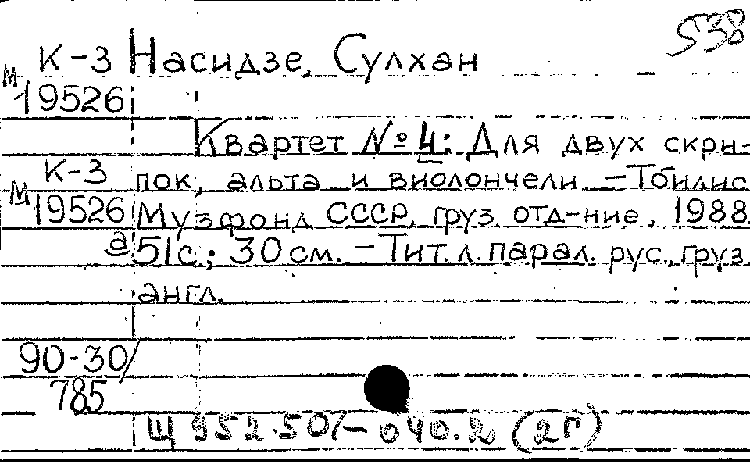 538
М К-3 Насидзе, Сулхан
19526
Квартет № 4: Для двух скри-
М К-3 пок, альта и виолончели. – Тбилис
19526 Музфонд СССР, груз. отд-ние, 1988.
а 51с.; 30 см. – Тит. л. парал. рус., груз.
англ.
90-30/
785
Щ 952.50/-040.2 (2Г)